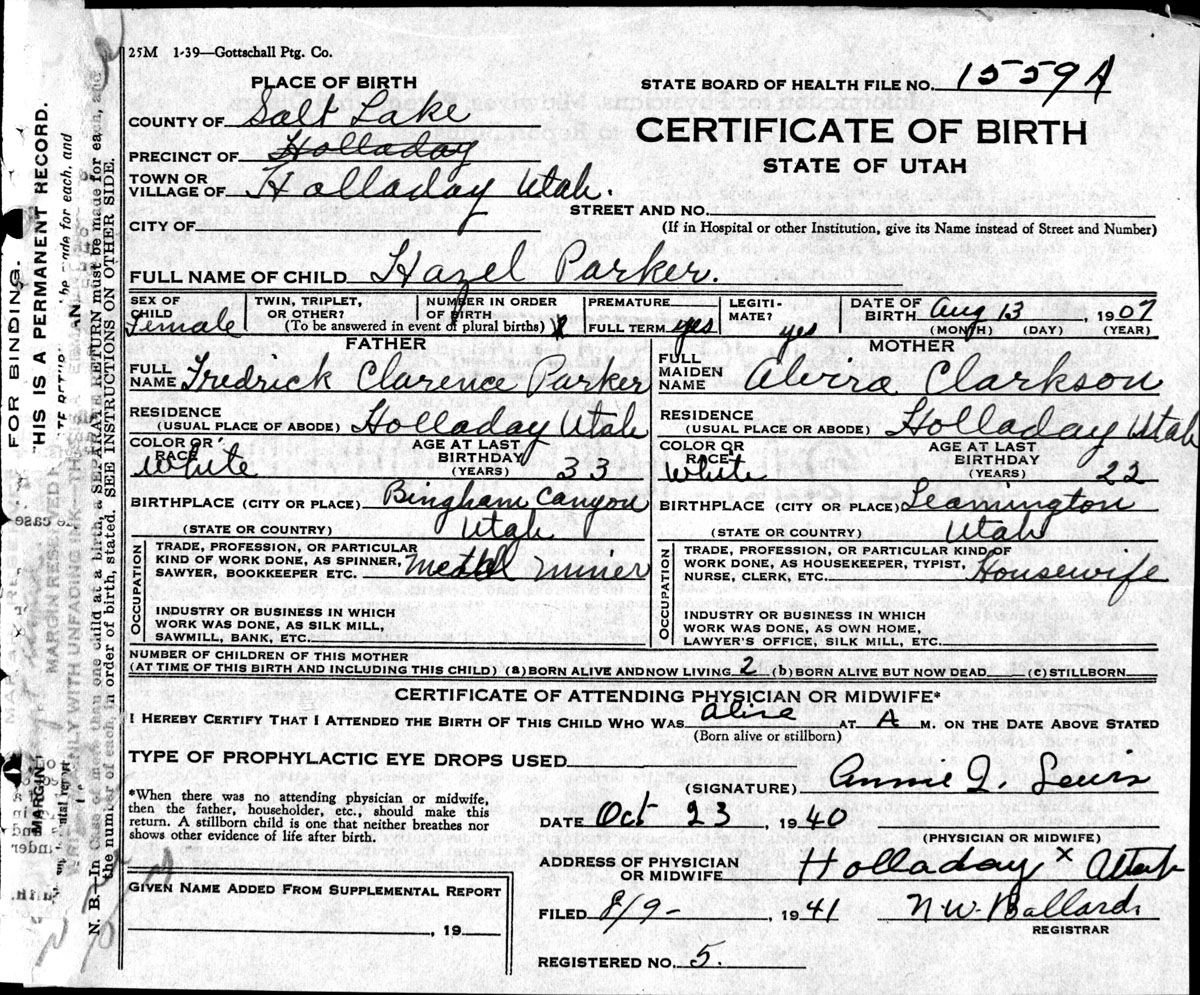 25M 1-39—Gottschall Ptg. Co.
PLACE OF BIRTH
STATE BOARD OF HEALTH FILE NO. 1559A
COUNTY OF Salt Lake
CERTIFICATE OF BIRTH
PRECINCT OF Holladay
STATE OF UTAH
TOWN OR VILLAGE OF Holladay Utah.
STREET AND NO.
CITY OF
(If in Hospital or other Institution, give its Name instead of Street and Number)
FULL NAME OF CHILD Hazel Parker.
SEX OF CHILD Female
TWIN, TRIPLET, OR OTHER?
NUMBER IN ORDER OF BIRTH
(To be answered in event of plural births)
PREMATURE
FULL TERM yes
LEGITIMATE? yes
DATE OF BIRTH Aug 13, 1907
(MONTH) (DAY) (YEAR)
FATHER
FULL NAME Fredrick Clarence Parker
RESIDENCE (USUAL PLACE OF ABODE) Holladay Utah
COLOR OR RACE White
AGE AT LAST BIRTHDAY (YEARS) 33
BIRTHPLACE (CITY OR PLACE) Bingham Canyon
(STATE OR COUNTRY) Utah
OCCUPATION
TRADE, PROFESSION, OR PARTICULAR
KIND OF WORK DONE, AS SPINNER,
SAWYER, BOOKKEEPER ETC. Metal miner
INDUSTRY OR BUSINESS IN WHICH
WORK WAS DONE, AS SILK MILL,
SAWMILL, BANK, ETC.
MOTHER
FULL MAIDEN NAME Alvira Clarkson
RESIDENCE (USUAL PLACE OR ABODE) Holladay Utah
COLOR OR RACE White
AGE AT LAST BIRTHDAY (YEARS) 22
BIRTHPLACE (CITY OR PLACE) Leamington
(STATE OR COUNTRY) Utah
OCCUPATION
TRADE, PROFESSION, OR PARTICULAR KIND OF
WORK DONE, AS HOUSEKEEPER, TYPIST,
NURSE, CLERK, ETC. Housewife
INDUSTRY OR BUSINESS IN WHICH
WORK WAS DONE, AS OWN HOME,
LAWYER'S OFFICE, SILK MILL, ETC.
NUMBER OF CHILDREN OF THIS MOTHER
(AT TIME OF THIS BIRTH AND INCLUDING THIS CHILD) (a) BORN ALIVE AND NOW LIVING 2 (b) BORN ALIVE BUT NOW DEAD (c) STILLBORN
CERTIFICATE OF ATTENDING PHYSICIAN OR MIDWIFE*
I HEREBY CERTIFY THAT I ATTENDED THE BIRTH OF THIS CHILD WHO WAS alive AT A M. ON THE DATE ABOVE STATED
(Born alive or stillborn)
TYPE OF PROPHYLACTIC EYE DROPS USED
(SIGNATURE) Annie Q. Lewis
*When there was no attending physician or midwife,
then the father, householder, etc., should make this
return. A stillborn child is one that neither breathes nor
shows other evidence of life after birth.
DATE Oct 23, 1940
(PHYSICIAN OR MIDWIFE)
ADDRESS OF PHYSICIAN OR MIDWIFE Holladay x Utah
GIVEN NAME ADDED FROM SUPPLEMENTAL REPORT
, 19
FILED 8/9- 1941 N.W. Ballard.
REGISTRAR
REGISTERED NO. 5.
FOR BINDING.
THIS IS A PERMANENT RECORD.
MARGIN RESERVED
WRITE PLAINLY WITH UNFADING INK—
N. B.—In Case of more than one child at a birth, a SEPARATE RETURN must be made for each, and
the number of each, in order of birth, stated. SEE INSTRUCTIONS ON OTHER SIDE.